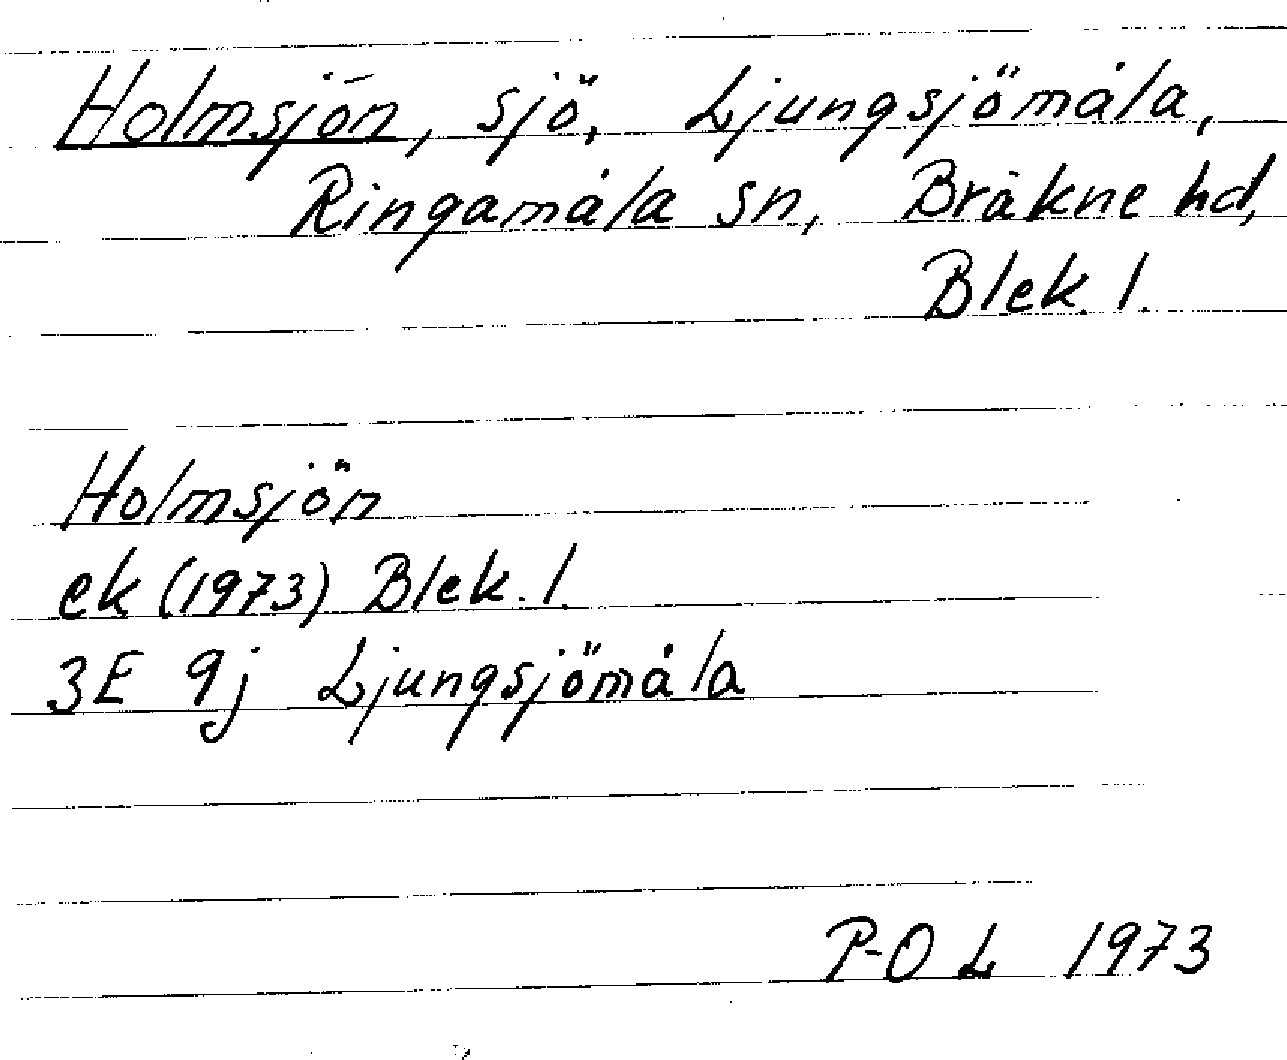 Holmsjön, sjö, Ljungsjömåla,
Ringamåla sn, Bräkne hd,
Blek. l.
Holmsjön
ek (1973) Blek. l.
3E 9j Ljungsjömåla
P-O L 1973